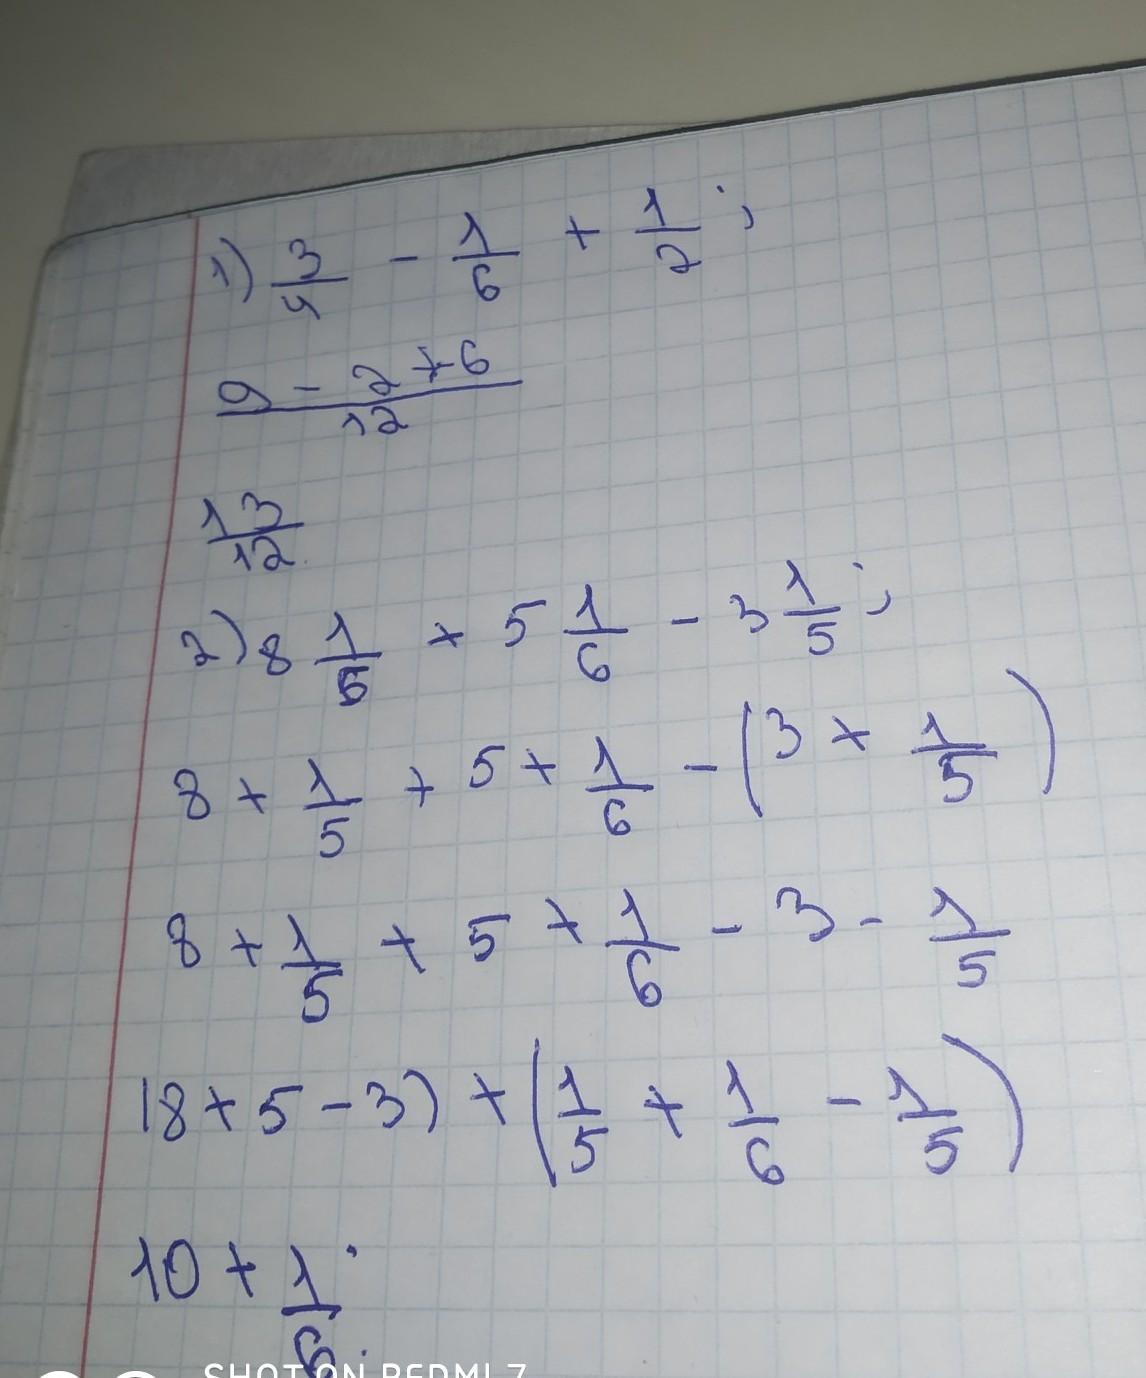 1) 3/4 - 1/6 + 1/2 ;
9 - 2 + 6 / 12
13/12
2) 8 1/5 + 5 1/6 - 3 1/5 ;
8 + 1/5 + 5 + 1/6 - (3 + 1/5)
8 + 1/5 + 5 + 1/6 - 3 - 1/5
(8 + 5 - 3) + (1/5 + 1/6 - 1/5)
10 + 1/6
SHOT ON REDMI 7